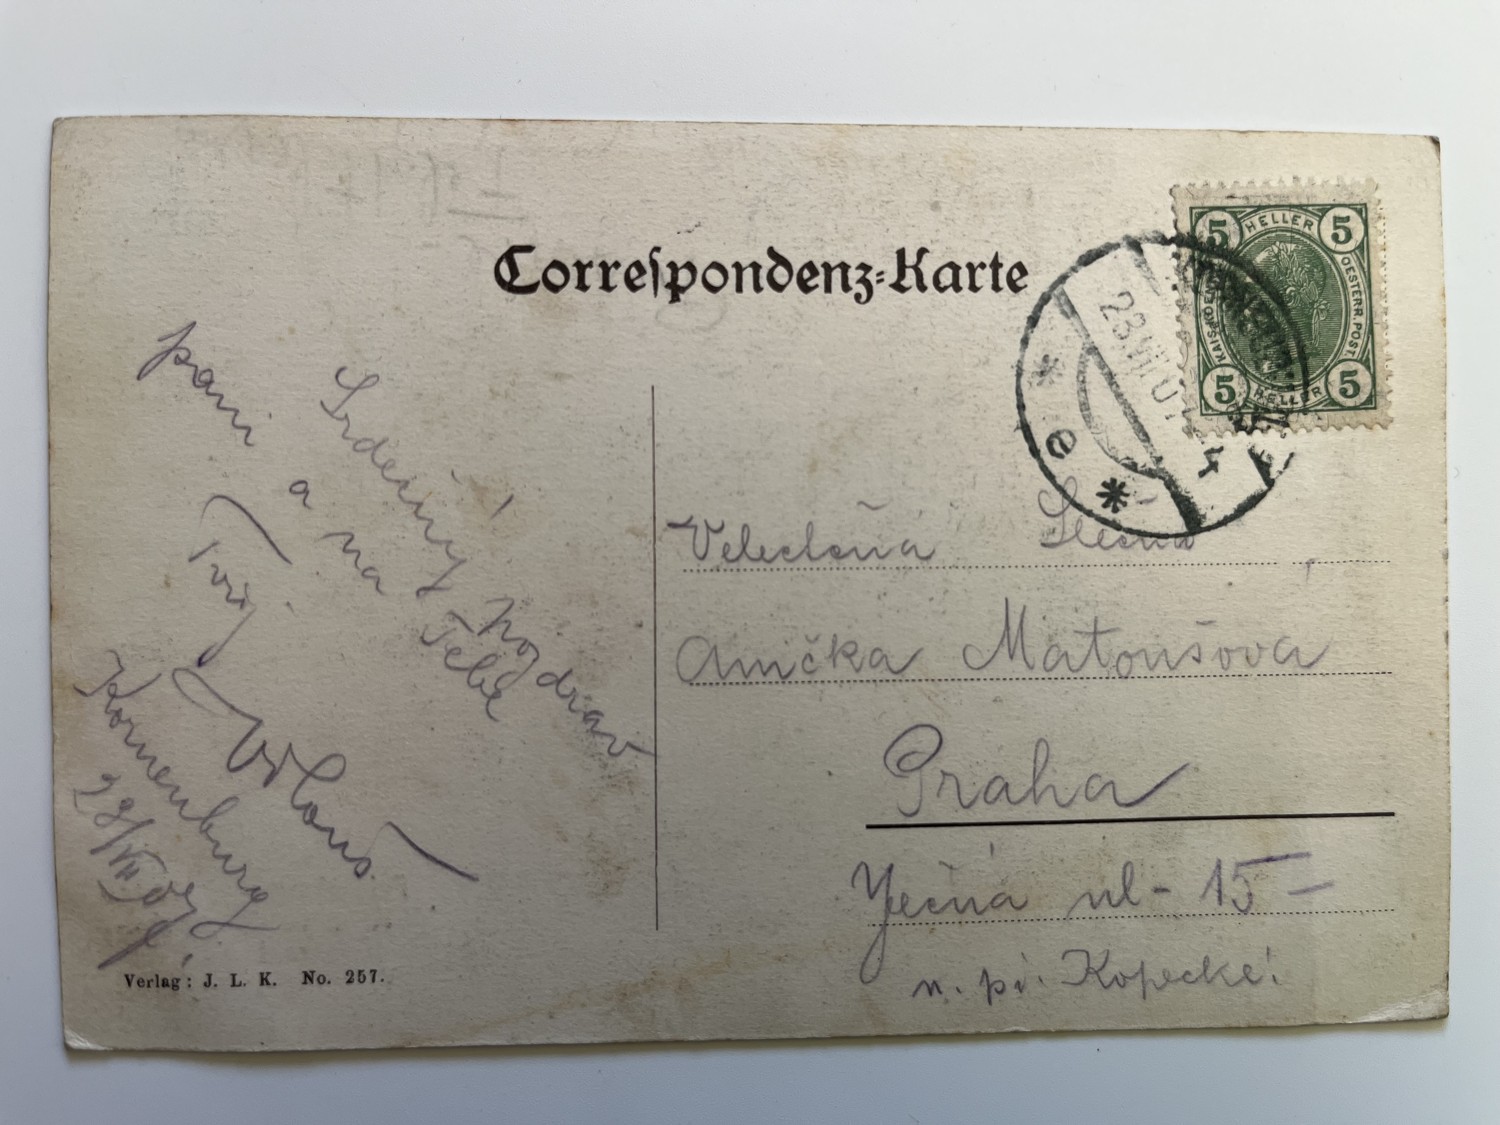 Correspondenz-Karte
5 HELLER 5
KAIS. KOENIGL. OESTERR. POST
5 HELLER 5
23.VII.07
* e *
Srdečný pozdrav
paní a na Tebe
Tvůj
Korneuburg
23/VII 07
Velectěná Slečna
Anička Matoušová
Praha
Ječná ul- 15 -
n. pí. Kopecké!
Verlag: J. L. K. No. 257.